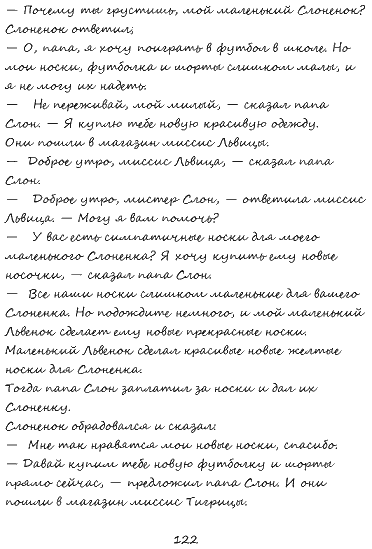 — Почему ты грустишь, мой маленький Слоненок?
Слоненок ответил;
— О, папа, я хочу поиграть в футбол в школе. Но
мои носки, футболка и шорты слишком малы, и
я не могу их надеть.
— Не переживай, мой милый, — сказал папа
Слон. — Я куплю тебе новую красивую одежду.
Они пошли в магазин миссис Львицы.
— Доброе утро, миссис Львица, — сказал папа
Слон.
— Доброе утро, мистер Слон, — ответила миссис
Львица. — Могу я вам помочь?
— У вас есть симпатичные носки для моего
маленького Слоненка? Я хочу купить ему новые
носочки, — сказал папа Слон.
— Все наши носки слишком маленькие для вашего
Слоненка. Но подождите немного, и мой маленький
Львенок сделает ему новые прекрасные носки.
Маленький Львенок сделал красивые новые желтые
носки для Слоненка.
Тогда папа Слон заплатил за носки и дал их
Слоненку.
Слоненок обрадовался и сказал:
— Мне так нравятся мои новые носки, спасибо.
— Давай купим тебе новую футболку и шорты
прямо сейчас, — предложил папа Слон. И они
пошли в магазин миссис Тигрицы.
122